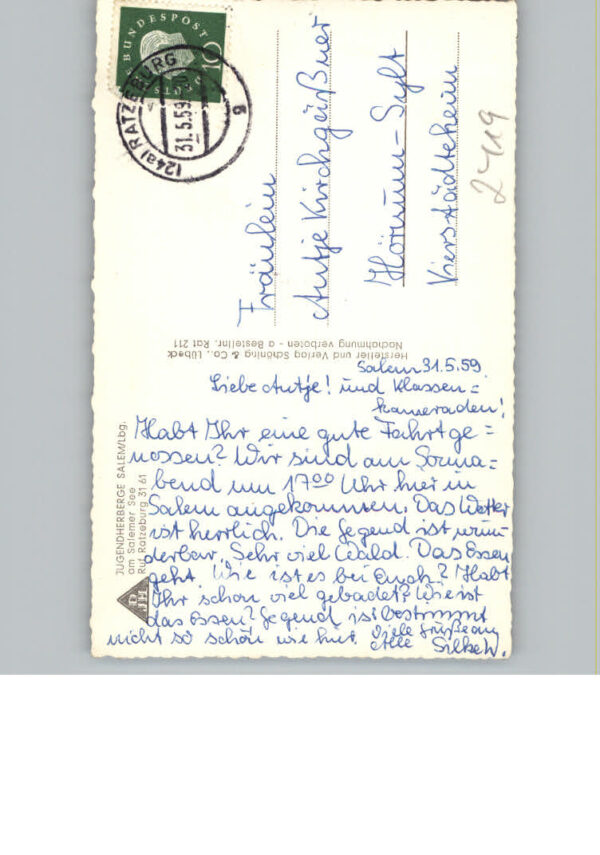 DEUTSCHE BUNDESPOST
(24a) RATZEBURG
31.5.59
g
Fräulein
Antje Kirchgeißner
Hörnum-Sylt
Vierstädteheim
2419
Hersteller und Verlag Schöning & Co., Lübeck
Nachahmung verboten - a Bestellnr. Rat 211
JUGENDHERBERGE SALEM/Lbg.
am Salemer See
Ruf Ratzeburg 31 61
DJH
Salem 31.5.59
Liebe Antje! und Klassen=
kameraden!
Habt Ihr eine gute Fahrt ge=
nossen? Wir sind am Sonna=
bend um 17⁰⁰ Uhr hier in
Salem angekommen. Das Wetter
ist herrlich. Die Gegend ist wun=
derbar. Sehr viel Wald. Das Essen
geht. Wie ist es bei Euch? Habt
Ihr schon viel gebadet? Wie ist
das Essen? Gegend ist bestimmt
nicht so schön wie hier. Viele Grüße an
Alle Silke W.